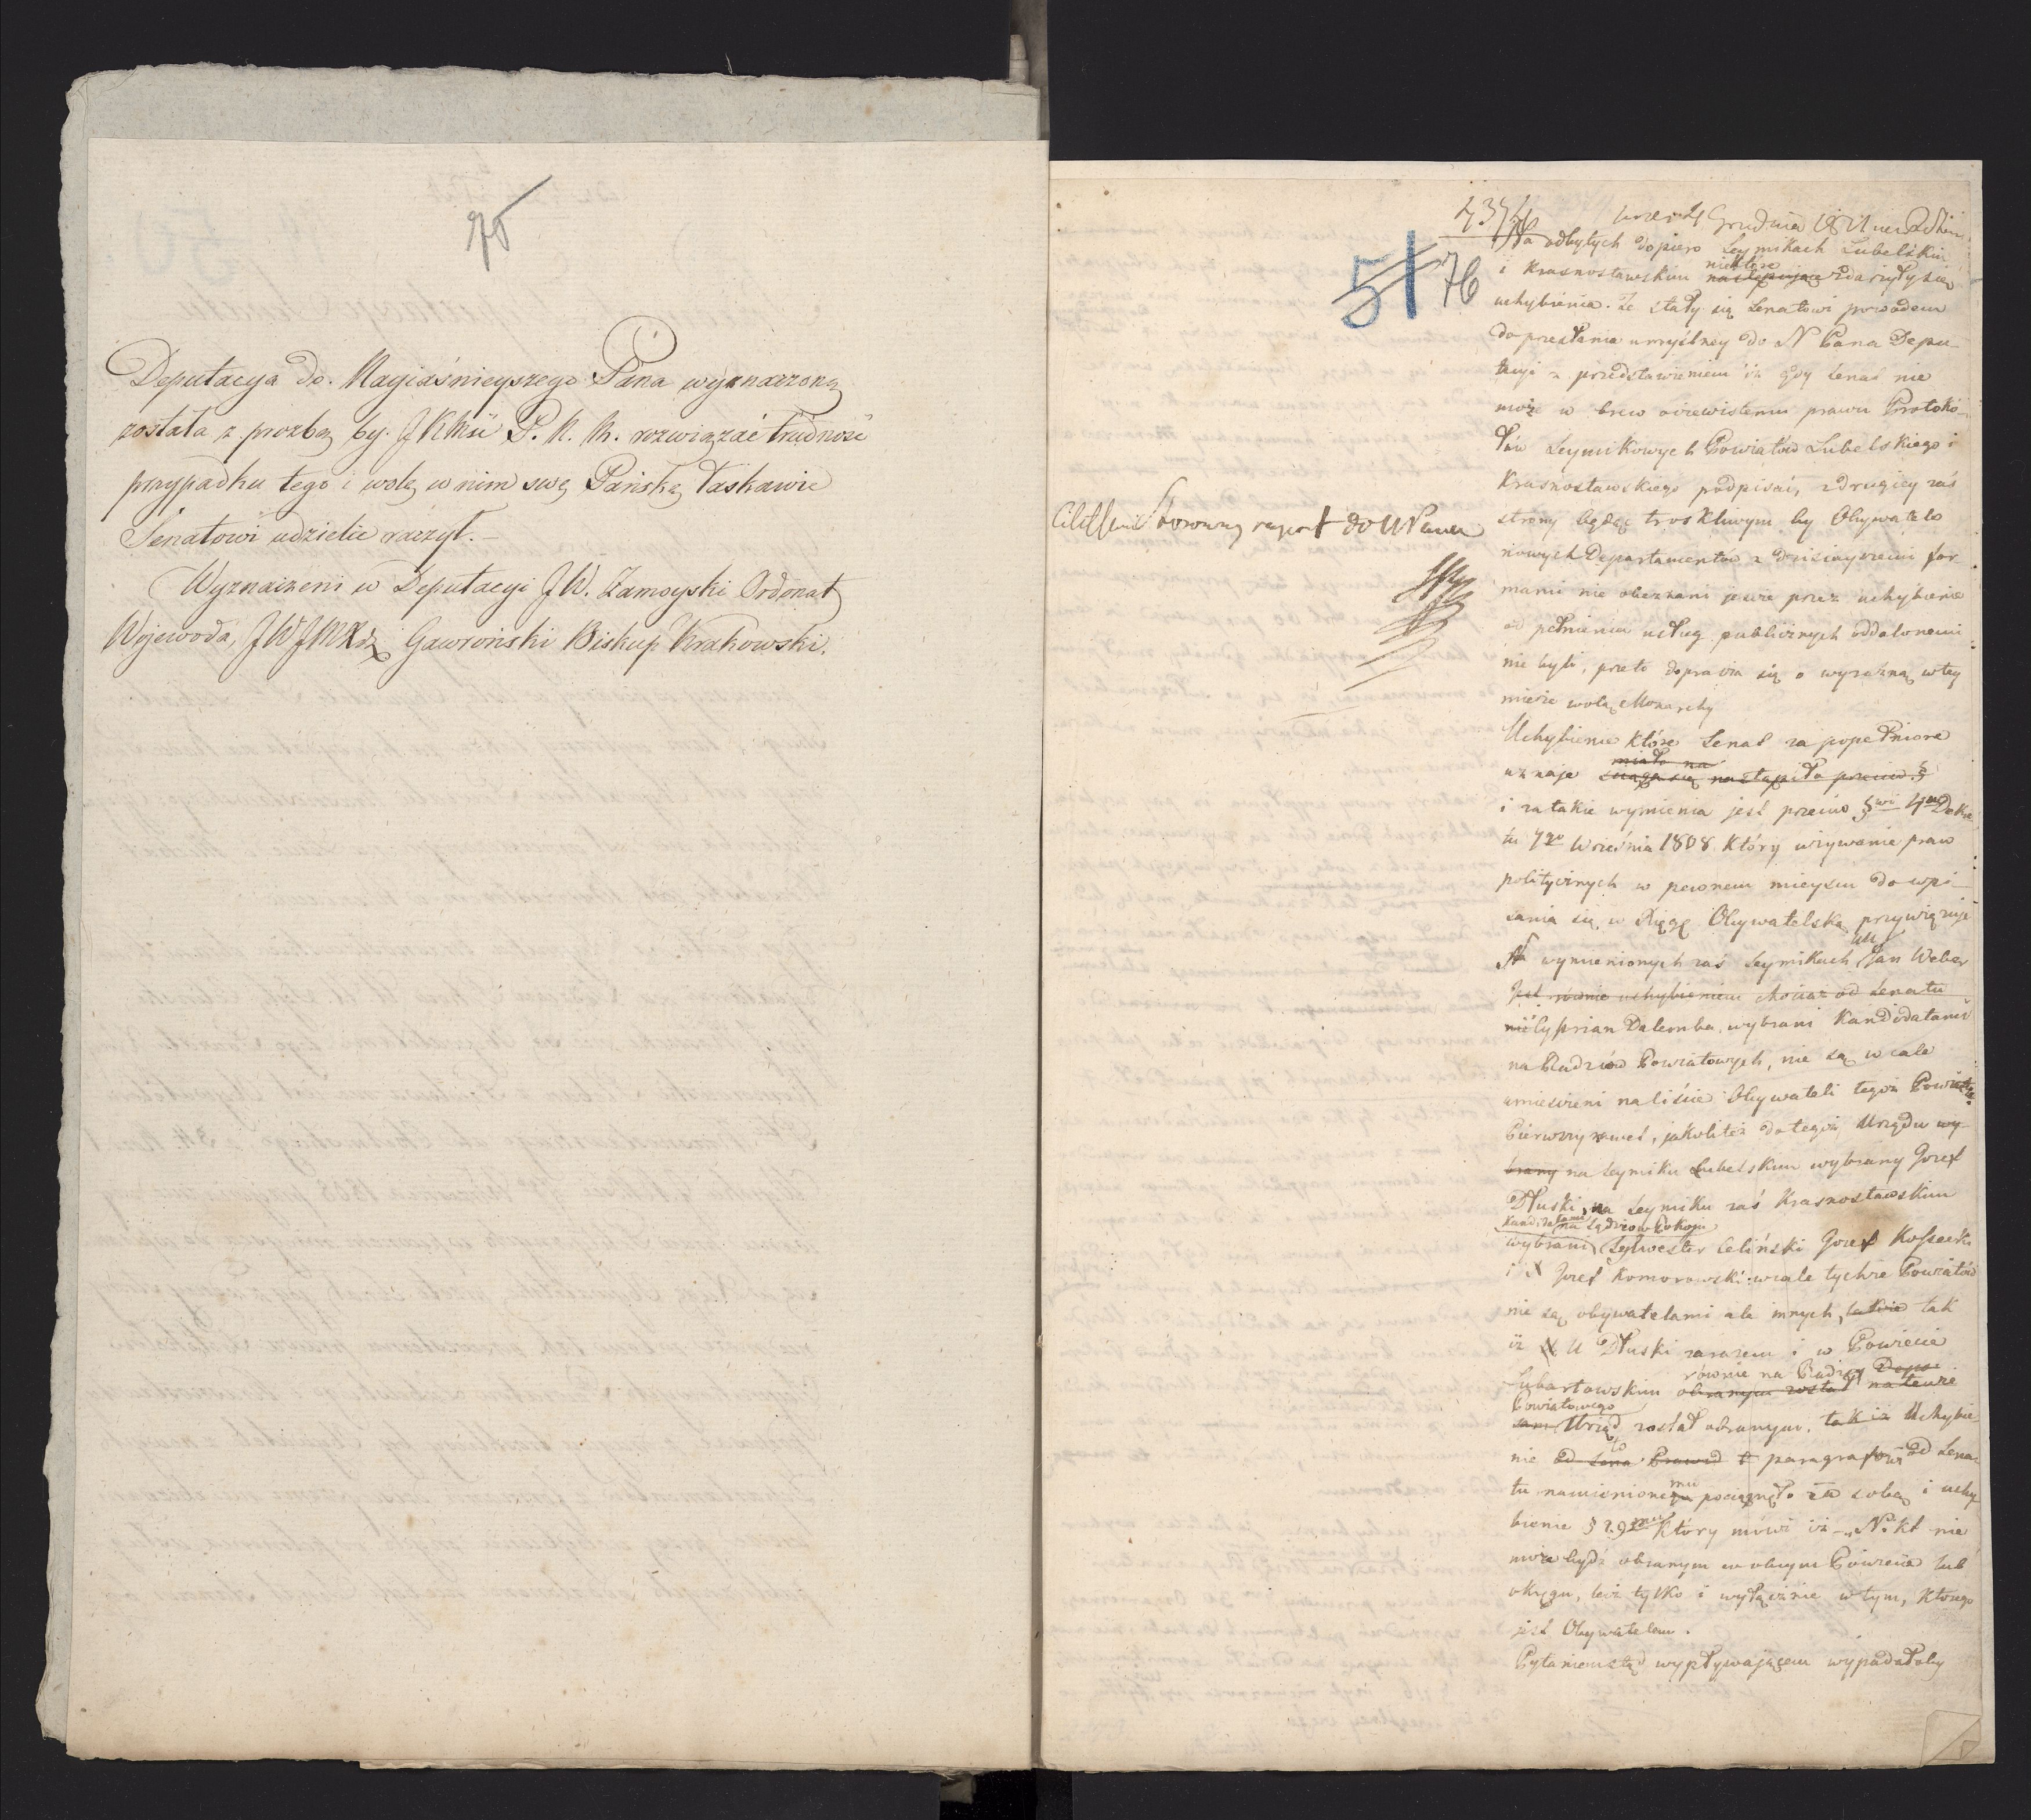 75
Deputacya do Nayiaśnieyszego Pana wyznaczoną
została z prozbą by J K Mść P. N. M. rozwiązać trudność
przypadku tego i wolę w nim swę Pańską łaskawie
Senatowi udzielić raczył. —
Wyznaczeni w Deputacyi JW. Zamoyski Ordonat
Wojewoda, JW JMX Gawroński Biskup Krakowski.
4374
51 76
Grudnia
Na odbytych dopiero Seymikach Lubelskim
i Krasnostawskim niektóre następujące zdarzyły się
uchybienia. Ze stały się Senatowi powodem
do przesłania umyślney do N Pana Depu-
tacyi z przedstawieniem iż gdy Senat nie
może w brew oczewistemu prawu Protokó-
łów Seymikowych Powiatów Lubelskiego i
Krasnostawskiego podpisać, z drugiey zaś
strony będąc troskliwym by Obywatele
nowych Departamentów z dzisieyszemi for-
mami nie obeznani jeszcze przez uchybienie
od pełnienia usług publicznych oddalonemi
nie byli, przeto doprasza się o wyraźną w tey
mierze wolą Monarchy
raport do N Pana
Uchybienie które Senat za popełnione
uznaje miało na ściąga się nastąpiło przeciw §
i za takie wymienia jest przeciw §wi 4mu Dekre
tu 7go Września 1808 który używanie praw
politycznych w pewnem mieyscu do wpi-
sania się w Księgę Obywatelską przywiązuje
Na wymienionych zaś Seymikach UU Jan Weber
jest równie uchybieniem chociaż od Senatu
nie Cyprian Dalemba, wybrani Kandydatami
na Radzców Powiatowych, nie są wcale
umieszczeni na liście Obywateli tegoż Powiatu.
Pierwszy zawet, jakoliteż do tegoż Urzędu wy-
brany na Seymiku Lubelskim wybrany Jozef
Dłuski, na Seymiku zaś Krasnostawskim
Kandidatami na Sędziow Pokoju
wybrani Sylwester Celiński Jozef Kossecki
i X Jozef Komorowski wcale tychże Powiatów
nie są obywatelami ale innych, także tak
iż X U Dłuski zarazem i w Powiecie
równie na Radzcę
Lubartowskim obranym został na tenże
Powiatowego
sam Urząd został obranym, tak iż Uchybie
nie to od Sena Prawid t paragrafowi od Sena-
tu namienionemu pociągnęło za sobą i uchy
bienie § 29mu który mówi iż — „Nikt nie
może bydź obranym w obcym Powiecie lub
okręgu, lecz tylko i wyłącznie w tym, którego
jest Obywatelem.
Pytaniem ztąd wypływającem wypadałoby